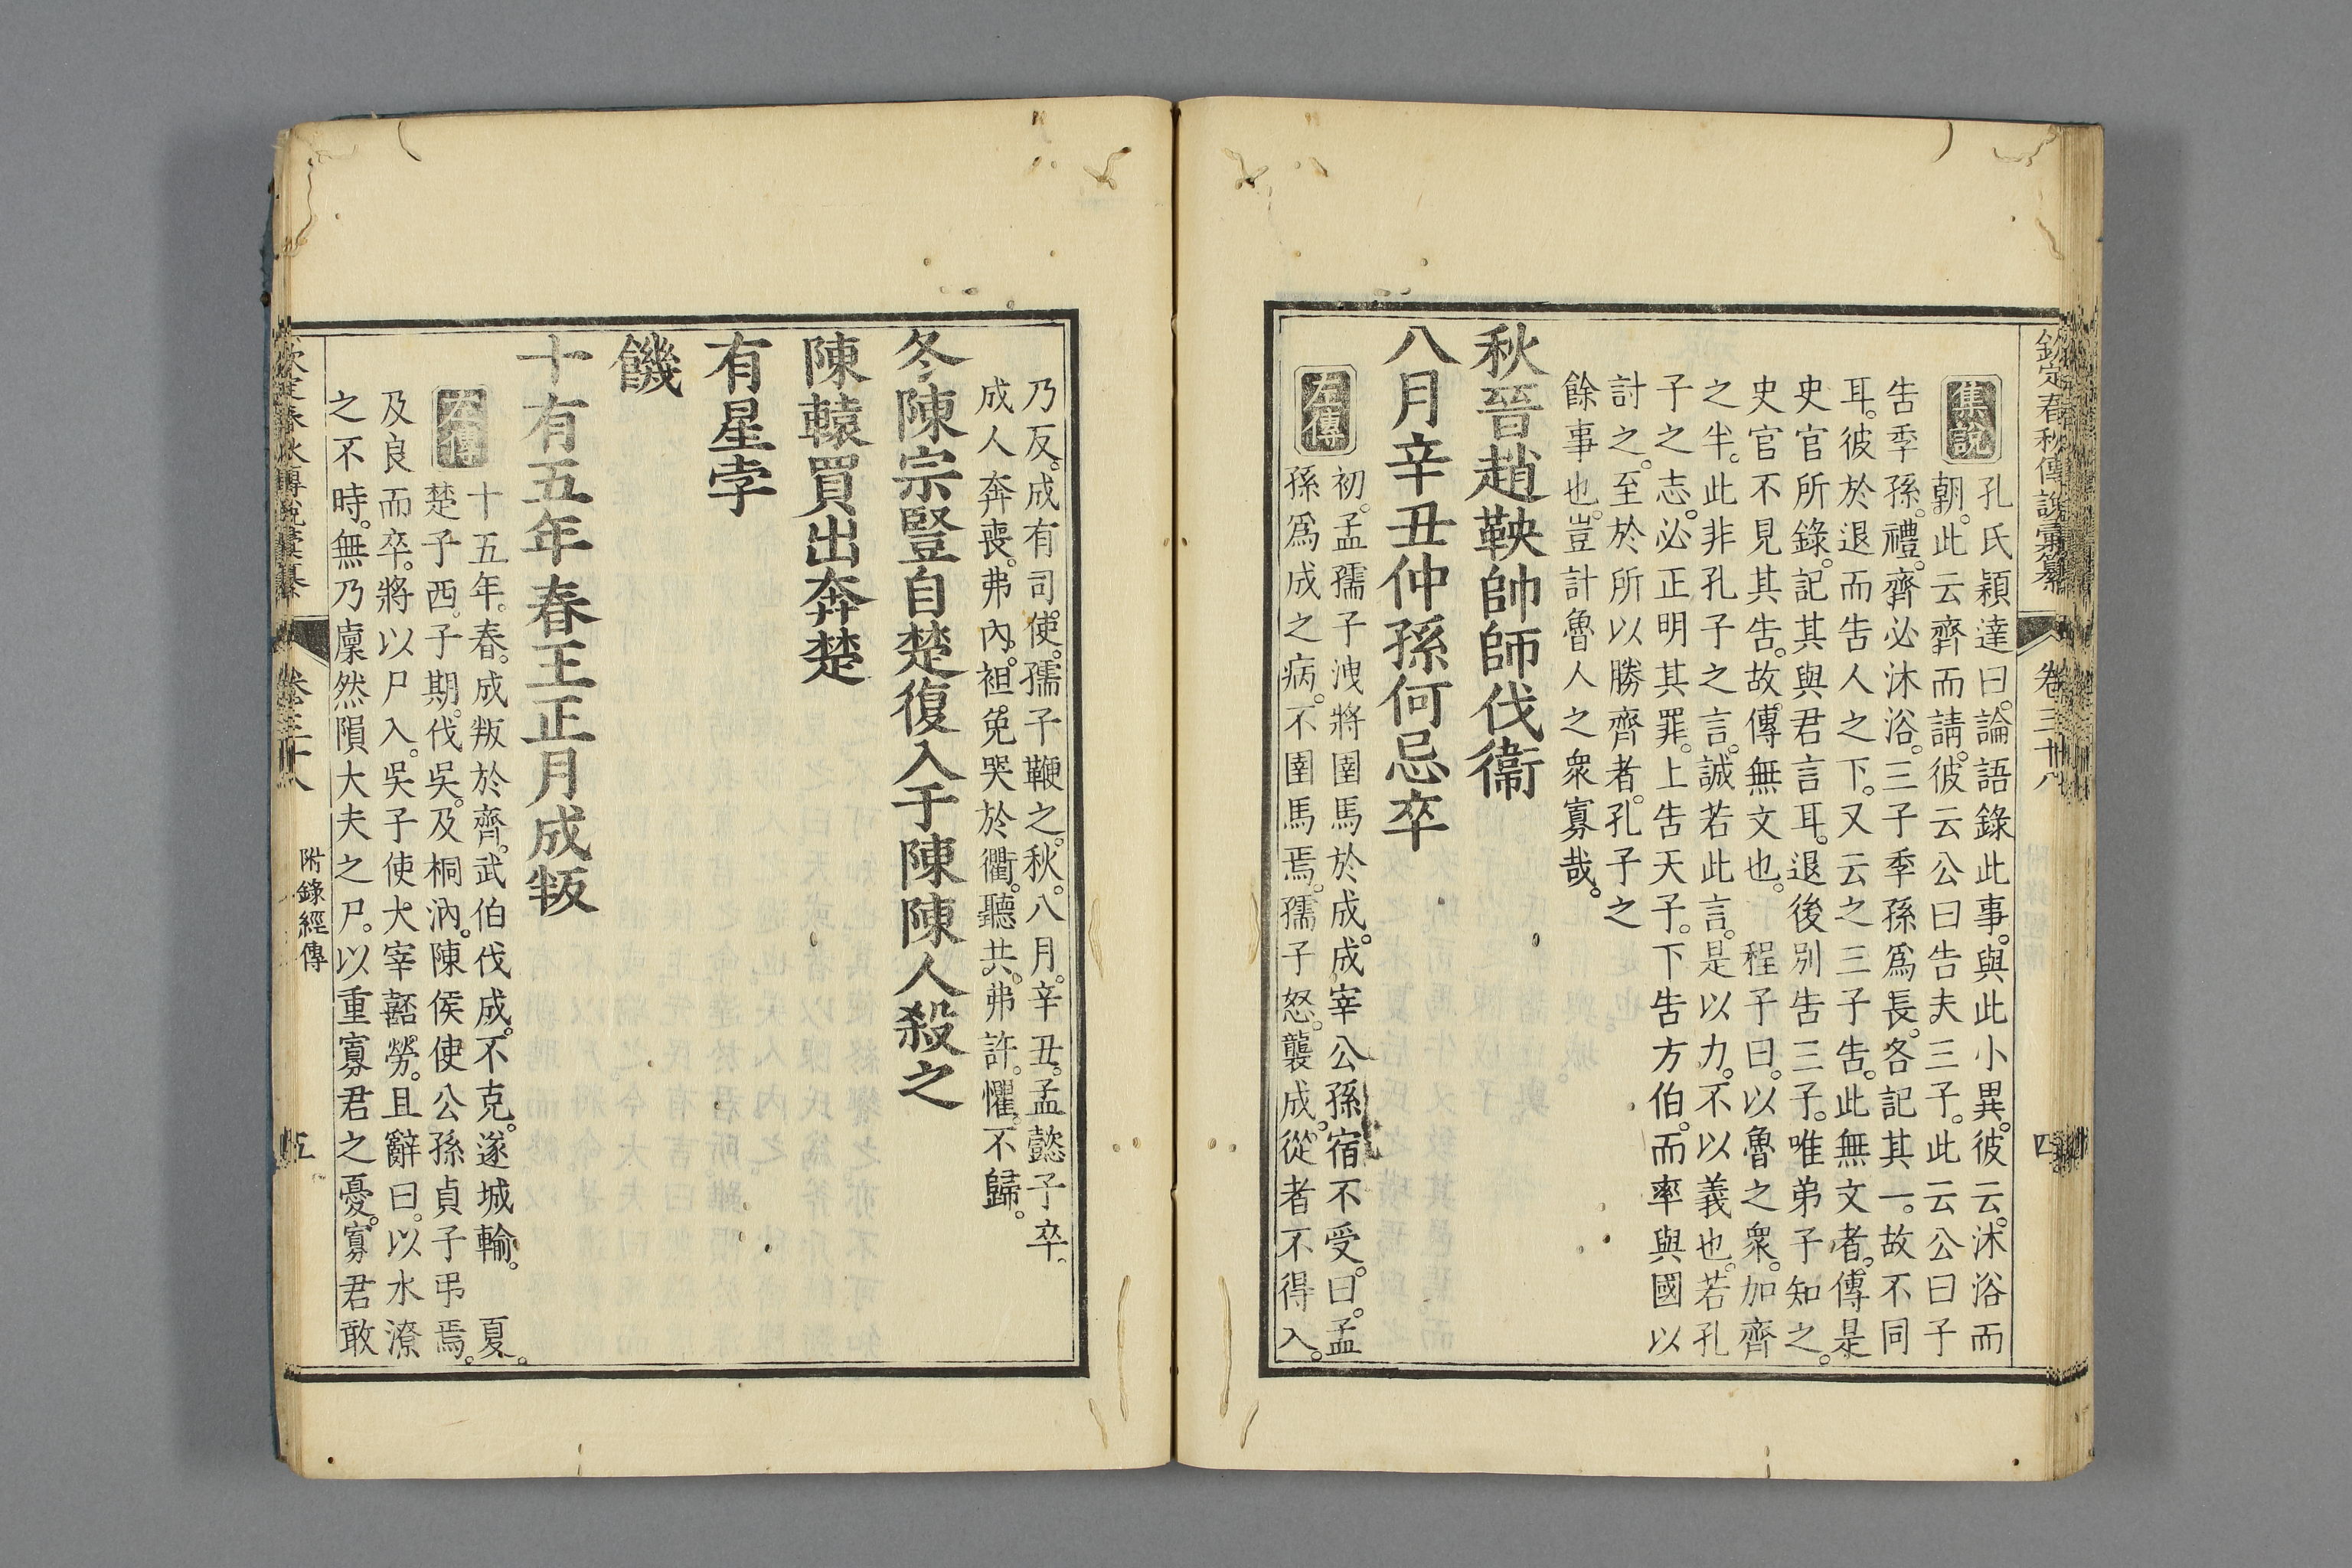 欽定春秋傳說彙纂 卷三十八 四
集說 孔氏穎達曰。論語錄此事。與此小異。彼云。沐浴而
朝。此云齊而請。彼云公曰告夫三子。此云公曰子
告季孫。禮。齊必沐浴。三子季孫爲長。各記其一。故不同
耳。彼於退而告人之下。又云之三子告。此無文者。傳是
史官所錄。記其與君言耳。退後別告三子。唯弟子知之。
史官不見其告。故傳無文也。 程子曰。以魯之衆。加齊
之半。此非孔子之言。誠若此言。是以力。不以義也。若孔
子之志。必正明其罪。上告天子。下告方伯。而率與國以
討之。至於所以勝齊者。孔子之
餘事也。豈計魯人之衆寡哉。
秋晉趙鞅帥師伐衞
八月辛丑仲孫何忌卒
左傳 初。孟孺子洩將圉馬於成。成宰公孫宿不受。曰。孟
孫爲成之病。不圉馬焉。孺子怒。襲成。從者不得入。
乃反。成有司使。孺子鞭之。秋。八月。辛丑。孟懿子卒。
成人奔喪。弗內。袒免哭於衢。聽共。弗許。懼。不歸。
冬陳宗豎自楚復入于陳陳人殺之
陳轅買出奔楚
有星孛
饑
十有五年春王正月成叛
左傳 十五年。春。成叛於齊。武伯伐成。不克。遂城輸。 夏。
楚子西。子期。伐吳。及桐汭。陳侯使公孫貞子弔焉。
及良而卒。將以尸入。吳子使大宰嚭勞。且辭曰。以水潦
之不時。無乃廩然隕大夫之尸。以重寡君之憂。寡君敢
欽定春秋傳說彙纂 卷三十八 附錄經傳 五